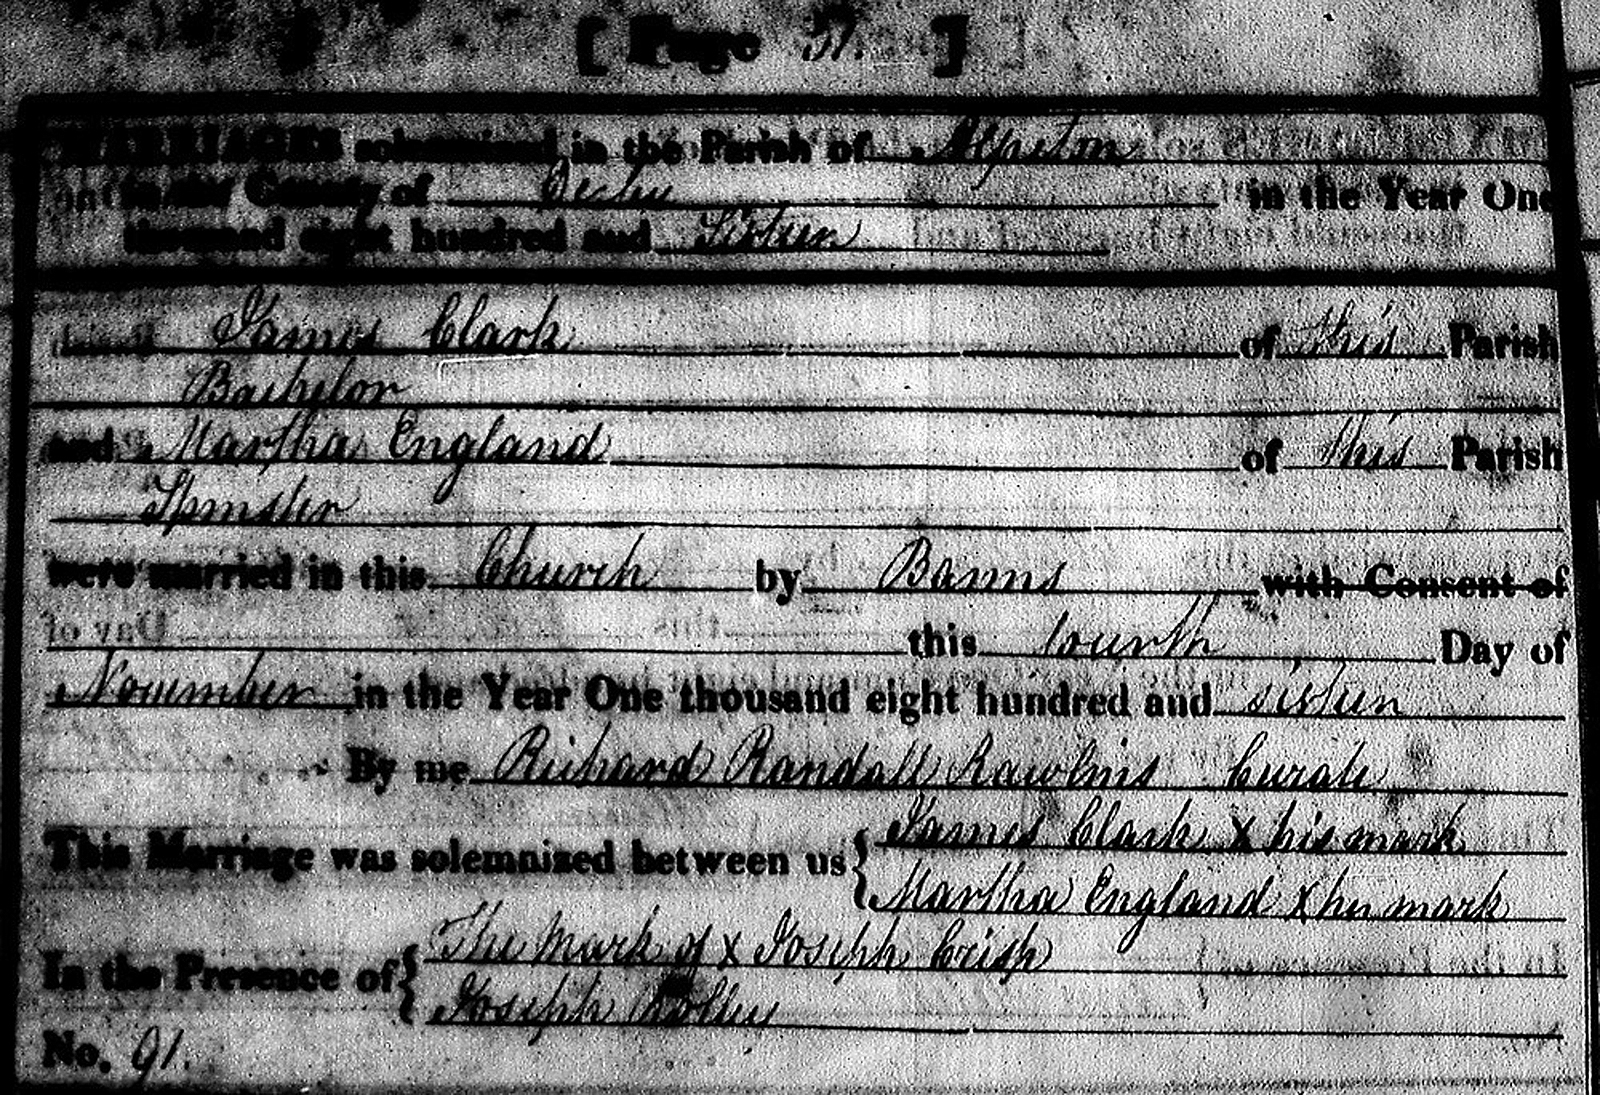 [ Page 31. ]
MARRIAGES solemnized in the Parish of
in the County of Derby in the Year One
thousand eight hundred and Sixteen
James Clark of this Parish
Bachelor
and Martha England of this Parish
Spinster
were married in this Church by Banns with Consent of
this fourth Day of
November in the Year One thousand eight hundred and sixteen
By me Richard Randall Rawlins Curate
This Marriage was solemnized between us { James Clark X his mark
Martha England X her mark
In the Presence of { The Mark of X Joseph Crisp
Joseph
No. 91.